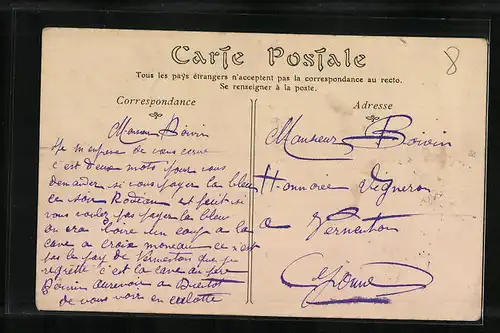 8
Carte Postale
Tous les pays étrangers n'acceptent pas la correspondance au recto.
Se renseigner à la poste.
Correspondance
Monsieur Boivin
Je m'empresse de vous
c'est deux mots pour vous
demander si vous payer la bleu
ce soir et peut si
vous voulez pas payer la bleu
on ira boire un coup a la
cave a croix moreau ce n'est
pas le pay de Vermenton que je
regrette c'est la cave au père
Boivin aurevoir a Bientot
de vous voir en culotte
Adresse
Monsieur Boivin
Honnoree Vigneron
a Vermenton
Yonne